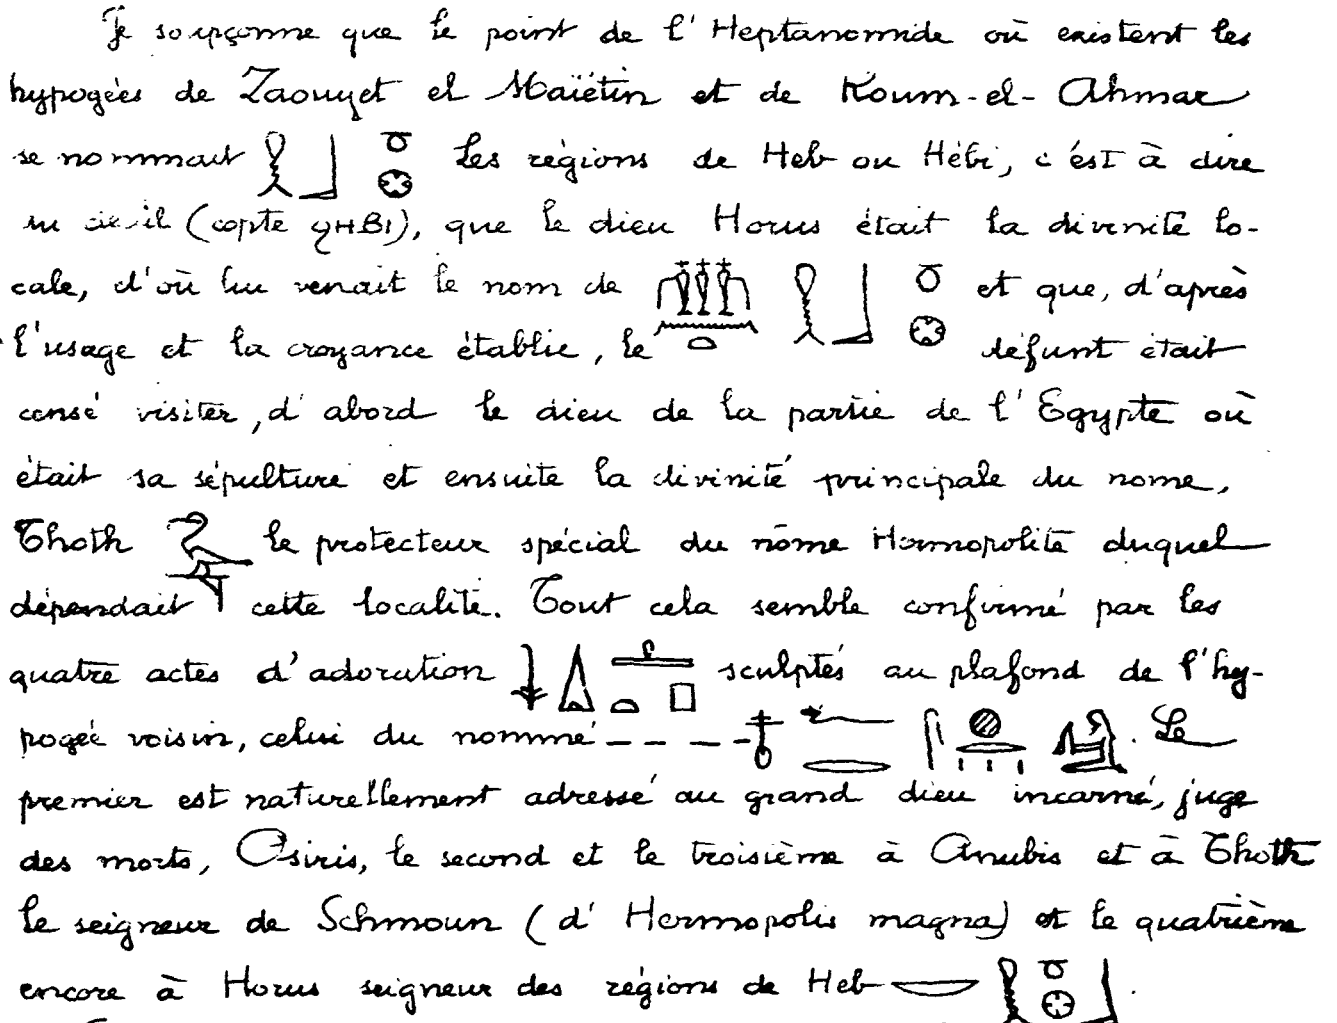 Je soupçonne que le point de l'Heptanomide où existent les
hypogées de Zaouyet el Maïétin et de Koum-el-Ahmar
se nommait Les régions de Heb ou Hébi, c'est à dire
(copte ϩHBI), que le dieu Horus était la divinité lo-
cale, d'où lui venait le nom de et que, d'après
l'usage et la croyance établie, le défunt était
censé visiter, d'abord le dieu de la partie de l'Egypte où
était sa sépulture et ensuite la divinité principale du nome,
Thoth le protecteur spécial du nôme Hermopolite duquel
dépendait cette localité. Tout cela semble confirmé par les
quatre actes d'adoration sculptés au plafond de l'hy-
pogée voisin, celui du nommé _ _ _ _ . Le
premier est naturellement adressé au grand dieu incarné, juge
des morts, Osiris, le second et le troisième à Anubis et à Thoth
le seigneur de Schmoun (d'Hermopolis magna) et le quatrième
encore à Horus seigneur des régions de Heb .